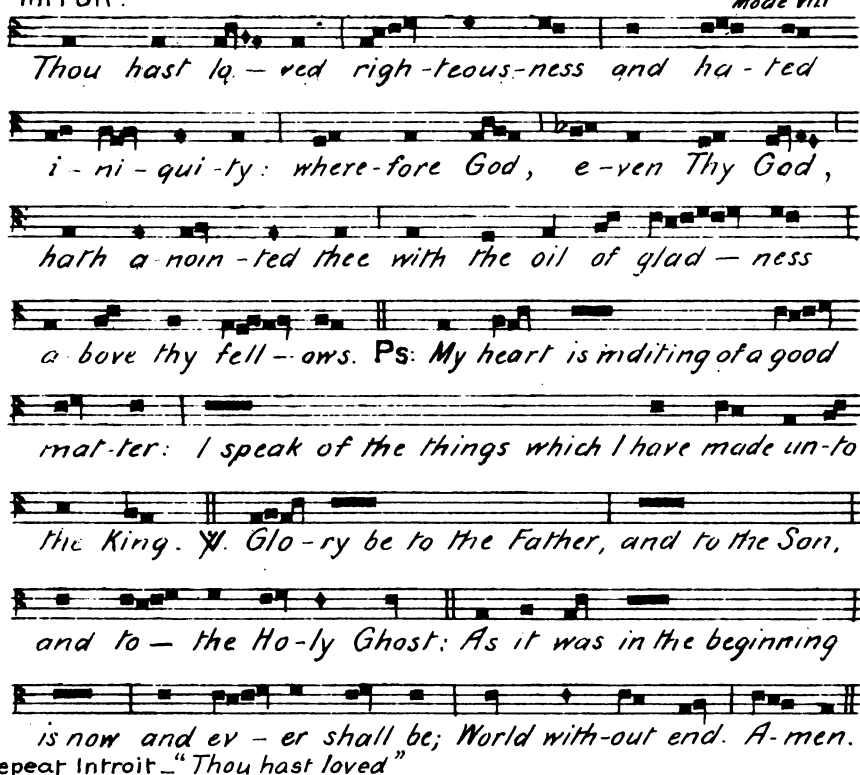 Mode VIII
Thou hast lo - ved righ-teous-ness and ha-ted
i-ni-qui-ty: where-fore God, e-ven Thy God,
hath a-noin-ted thee with the oil of glad - ness
a-bove thy fell - ows. Ps: My heart is inditing of a good
mat-ter: I speak of the things which I have made un-to
the King. ℣. Glo-ry be to the Father, and to the Son,
and to - the Ho-ly Ghost: As it was in the beginning
is now and ev - er shall be; World with-out end. A-men.
epeat Introit - "Thou hast loved"